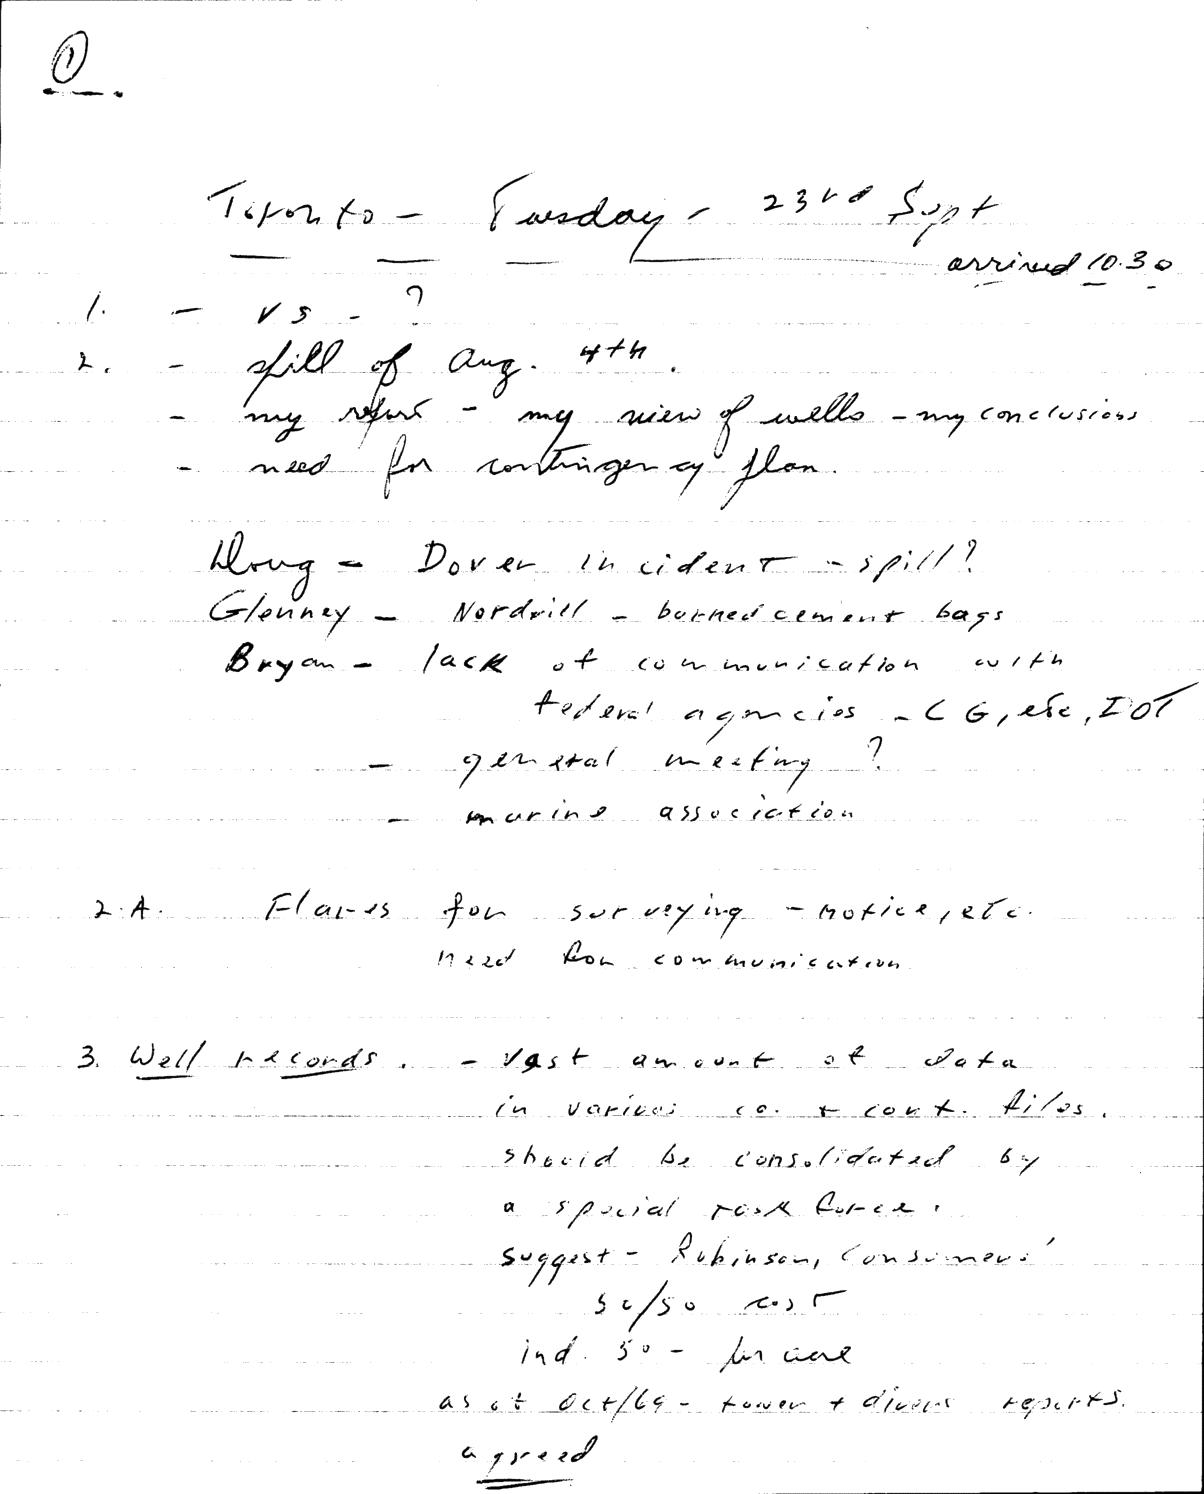 1
Toronto - Tuesday - 23rd Sept
arrived 10.30
1. - VS - ?
2. - spill of Aug. 4th.
- my report - my view of wells - my conclusions
- need for contingency plan.
Doug - Dover incident - spill?
Glenney - Nordrill - burned cement bags
Bryan - lack of communication with
federal agencies - CG, etc, IOT
- general meeting ?
- marine association
2.A. Flares for surveying - notice, etc.
need for communication
3. Well records. - vast amount of data
in various co. + cont. files.
should be consolidated by
a special task force.
suggest - Robinson, Consumers'
50/50 cost
ind. 50 - per acre
as of Oct/69 - tower + divers reports.
agreed